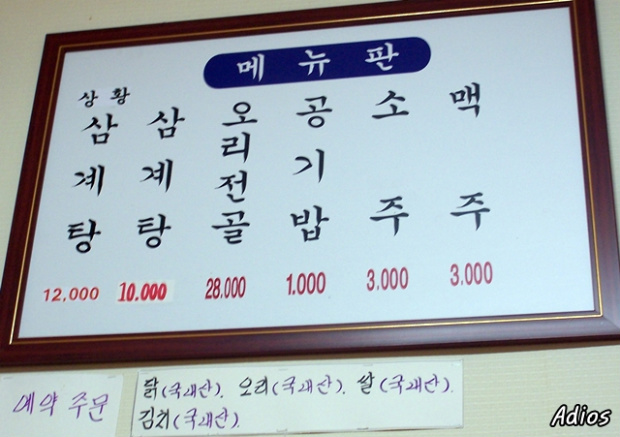 메뉴판
상황
삼계탕
삼계탕
오리전골
공기밥
소주
맥주
12,000
10.000
28.000
1.000
3.000
3.000
예약 주문
닭(국내산). 오리(국내산). 쌀(국내산).
김치(국내산).
Adios